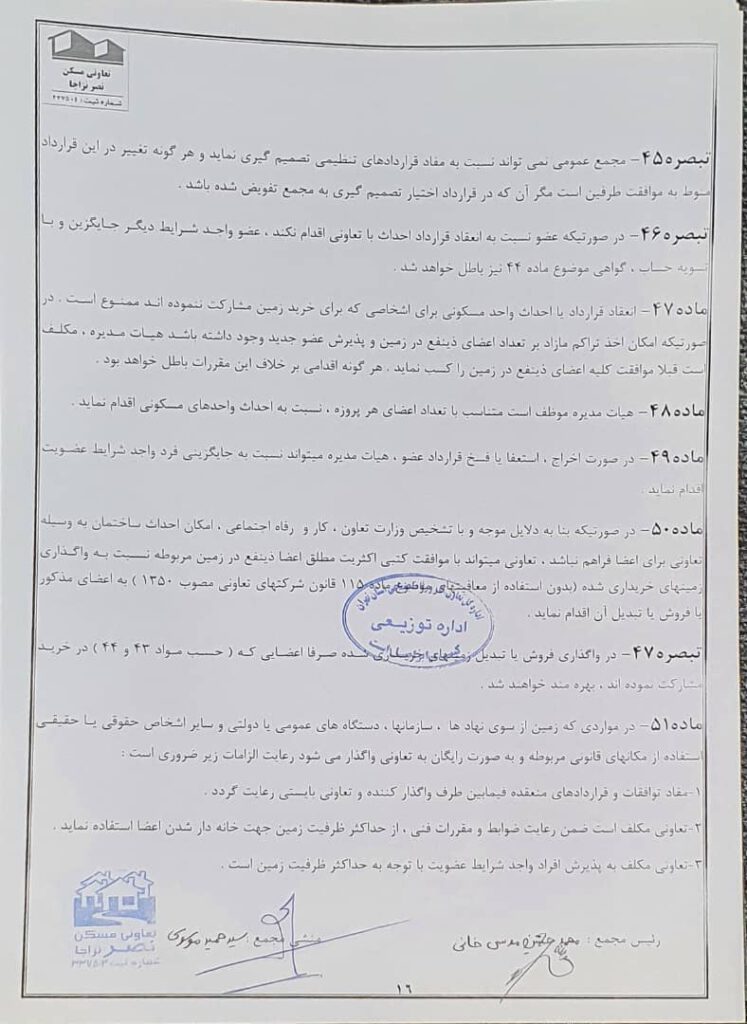 تعاونی مسکن
نصر نزاجا
شماره ثبت:
تبصره۴۵- مجمع عمومی نمی تواند نسبت به مفاد قراردادهای تنظیمی تصمیم گیری نماید و هر گونه تغییر در این قرارداد
منوط به موافقت طرفین است مگر آن که در قرارداد اختیار تصمیم گیری به مجمع تفویض شده باشد .
تبصره۴۶- در صورتیکه عضو نسبت به انعقاد قرارداد احداث با تعاونی اقدام نکند ، عضو واجد شرایط دیگر جایگزین و با
تسویه حساب ، گواهی موضوع ماده ۴۴ نیز باطل خواهد شد .
ماده۴۷- انعقاد قرارداد یا احداث واحد مسکونی برای اشخاصی که برای خرید زمین مشارکت ننموده اند ممنوع است . در
صورتیکه امکان اخذ تراکم مازاد بر تعداد اعضای ذینفع در زمین و پذیرش عضو جدید وجود داشته باشد هیات مدیره ، مکلف
است قبلا موافقت کلیه اعضای ذینفع در زمین را کسب نماید . هر گونه اقدامی بر خلاف این مقررات باطل خواهد بود .
ماده۴۸- هیات مدیره موظف است متناسب با تعداد اعضای هر پروژه ، نسبت به احداث واحدهای مسکونی اقدام نماید .
ماده۴۹- در صورت اخراج ، استعفا یا فسخ قرارداد عضو ، هیات مدیره میتواند نسبت به جایگزینی فرد واجد شرایط عضویت
اقدام نماید .
ماده۵۰- در صورتیکه بنا به دلایل موجه و با تشخیص وزارت تعاون ، کار و رفاه اجتماعی ، امکان احداث ساختمان به وسیله
تعاونی برای اعضا فراهم نباشد ، تعاونی میتواند با موافقت کتبی اکثریت مطلق اعضا ذینفع در زمین مربوطه نسبت به واگذاری
زمینهای خریداری شده (بدون استفاده از معافیتهای موضوع ماده ۱۱۵ قانون شرکتهای تعاونی مصوب ۱۳۵۰ ) به اعضای مذکور
یا فروش یا تبدیل آن اقدام نماید .
اداره توزیعی
تبصره۴۷- در واگذاری فروش یا تبدیل زمینهای خریداری شده صرفا اعضایی که ( حسب مواد ۴۳ و ۴۴ ) در خرید
مشارکت نموده اند ، بهره مند خواهند شد .
ماده۵۱- در مواردی که زمین از سوی نهاد ها ، سازمانها ، دستگاه های عمومی یا دولتی و سایر اشخاص حقوقی یا حقیقی
استفاده از مکانهای قانونی مربوطه و به صورت رایگان به تعاونی واگذار می شود رعایت الزامات زیر ضروری است :
۱-مفاد توافقات و قراردادهای منعقده فیمابین طرف واگذار کننده و تعاونی بایستی رعایت گردد .
۲-تعاونی مکلف است ضمن رعایت ضوابط و مقررات فنی ، از حداکثر ظرفیت زمین جهت خانه دار شدن اعضا استفاده نماید .
۳-تعاونی مکلف به پذیرش افراد واجد شرایط عضویت با توجه به حداکثر ظرفیت زمین است .
رئیس مجمع : محمد مدسی خانی
منشی مجمع : سید حمید موسوی
تعاونی مسکن
نصر نزاجا
شماره ثبت
۱۶